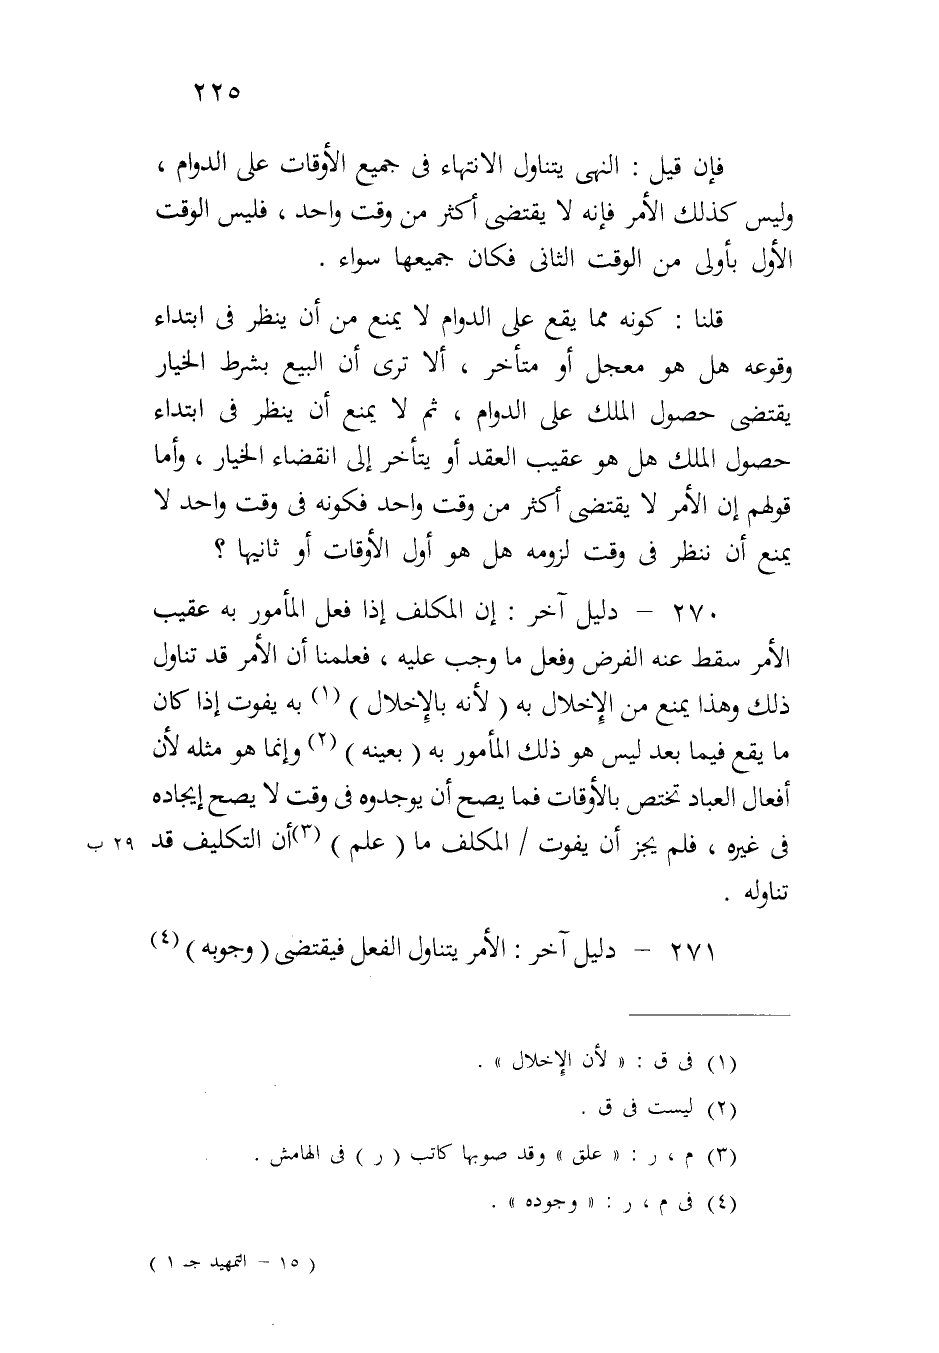 ٢٢٥
فإن قيل : النهى يتناول الانتهاء فى جميع الأوقات على الدوام ،
وليس كذلك الأمر فإنه لا يقتضى أكثر من وقت واحد ، فليس الوقت
الأول بأولى من الوقت الثانى فكان جميعها سواء .
قلنا : كونه مما يقع على الدوام لا يمنع من أن ينظر فى ابتداء
وقوعه هل هو معجل أو متأخر ، ألا ترى أن البيع بشرط الخيار
يقتضى حصول الملك على الدوام ، ثم لا يمنع أن ينظر فى ابتداء
حصول الملك هل هو عقيب العقد أو يتأخر إلى انقضاء الخيار ، وأما
قولهم إن الأمر لا يقتضى أكثر من وقت واحد فكونه فى وقت واحد لا
يمنع أن ننظر فى وقت لزومه هل هو أول الأوقات أو ثانيها ؟
٢٧٠ – دليل آخر : إن المكلف إذا فعل المأمور به عقيب
الأمر سقط عنه الفرض وفعل ما وجب عليه ، فعلمنا أن الأمر قد تناول
ذلك وهذا يمنع من الإخلال به ( لأنه بالإخلال ) (١) به يفوت إذا كان
ما يقع فيما بعد ليس هو ذلك المأمور به ( بعينه ) (٢) وإنما هو مثله لأن
أفعال العباد تختص بالأوقات فما يصح أن يوجدوه فى وقت لا يصح إيجاده
فى غيره ، فلم يجز أن يفوت / المكلف ما ( علم ) (٣) أن التكليف قد ٢٩ ب
تناوله .
٢٧١ – دليل آخر : الأمر يتناول الفعل فيقتضى ( وجوبه ) (٤)
(١) فى ق : « لأن الإخلال » .
(٢) ليست فى ق .
(٣) م ، ر : « علق » وقد صوبها كاتب ( ر ) فى الهامش .
(٤) فى م ، ر : « وجوده » .
( ١٥ – التمهيد جـ ١ )